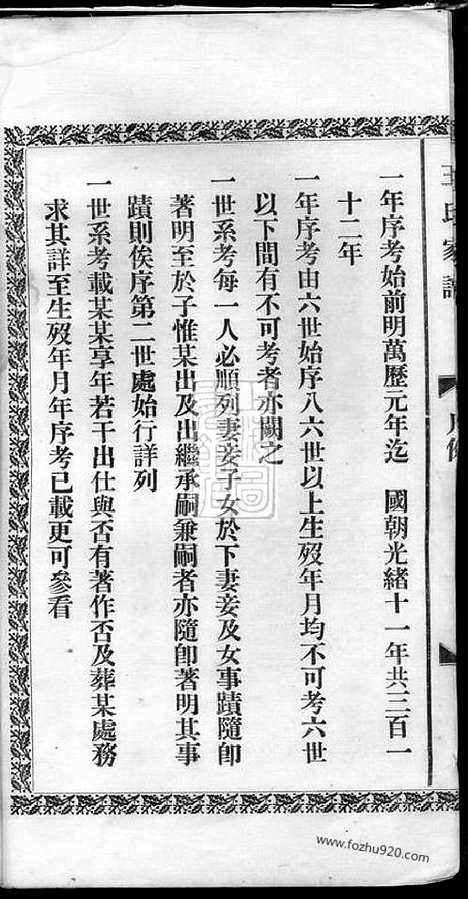 一年序考始前明萬歷元年迄　國朝光緒十一年共三百一
十二年
一年序考由六世始序八六世以上生歿年月均不可考六世
以下間有不可考者亦闕之
一世系考每一人必順列妻妾子女於下妻妾及女事蹟隨卽
著明至於子惟某出及出繼承嗣兼嗣者亦隨卽著明其事
蹟則俟序第二世處始行詳列
一世系考載某某享年若干出仕與否有著作否及葬某處務
求其詳至生歿年月年序考已載更可參看
www.fozhu920.com